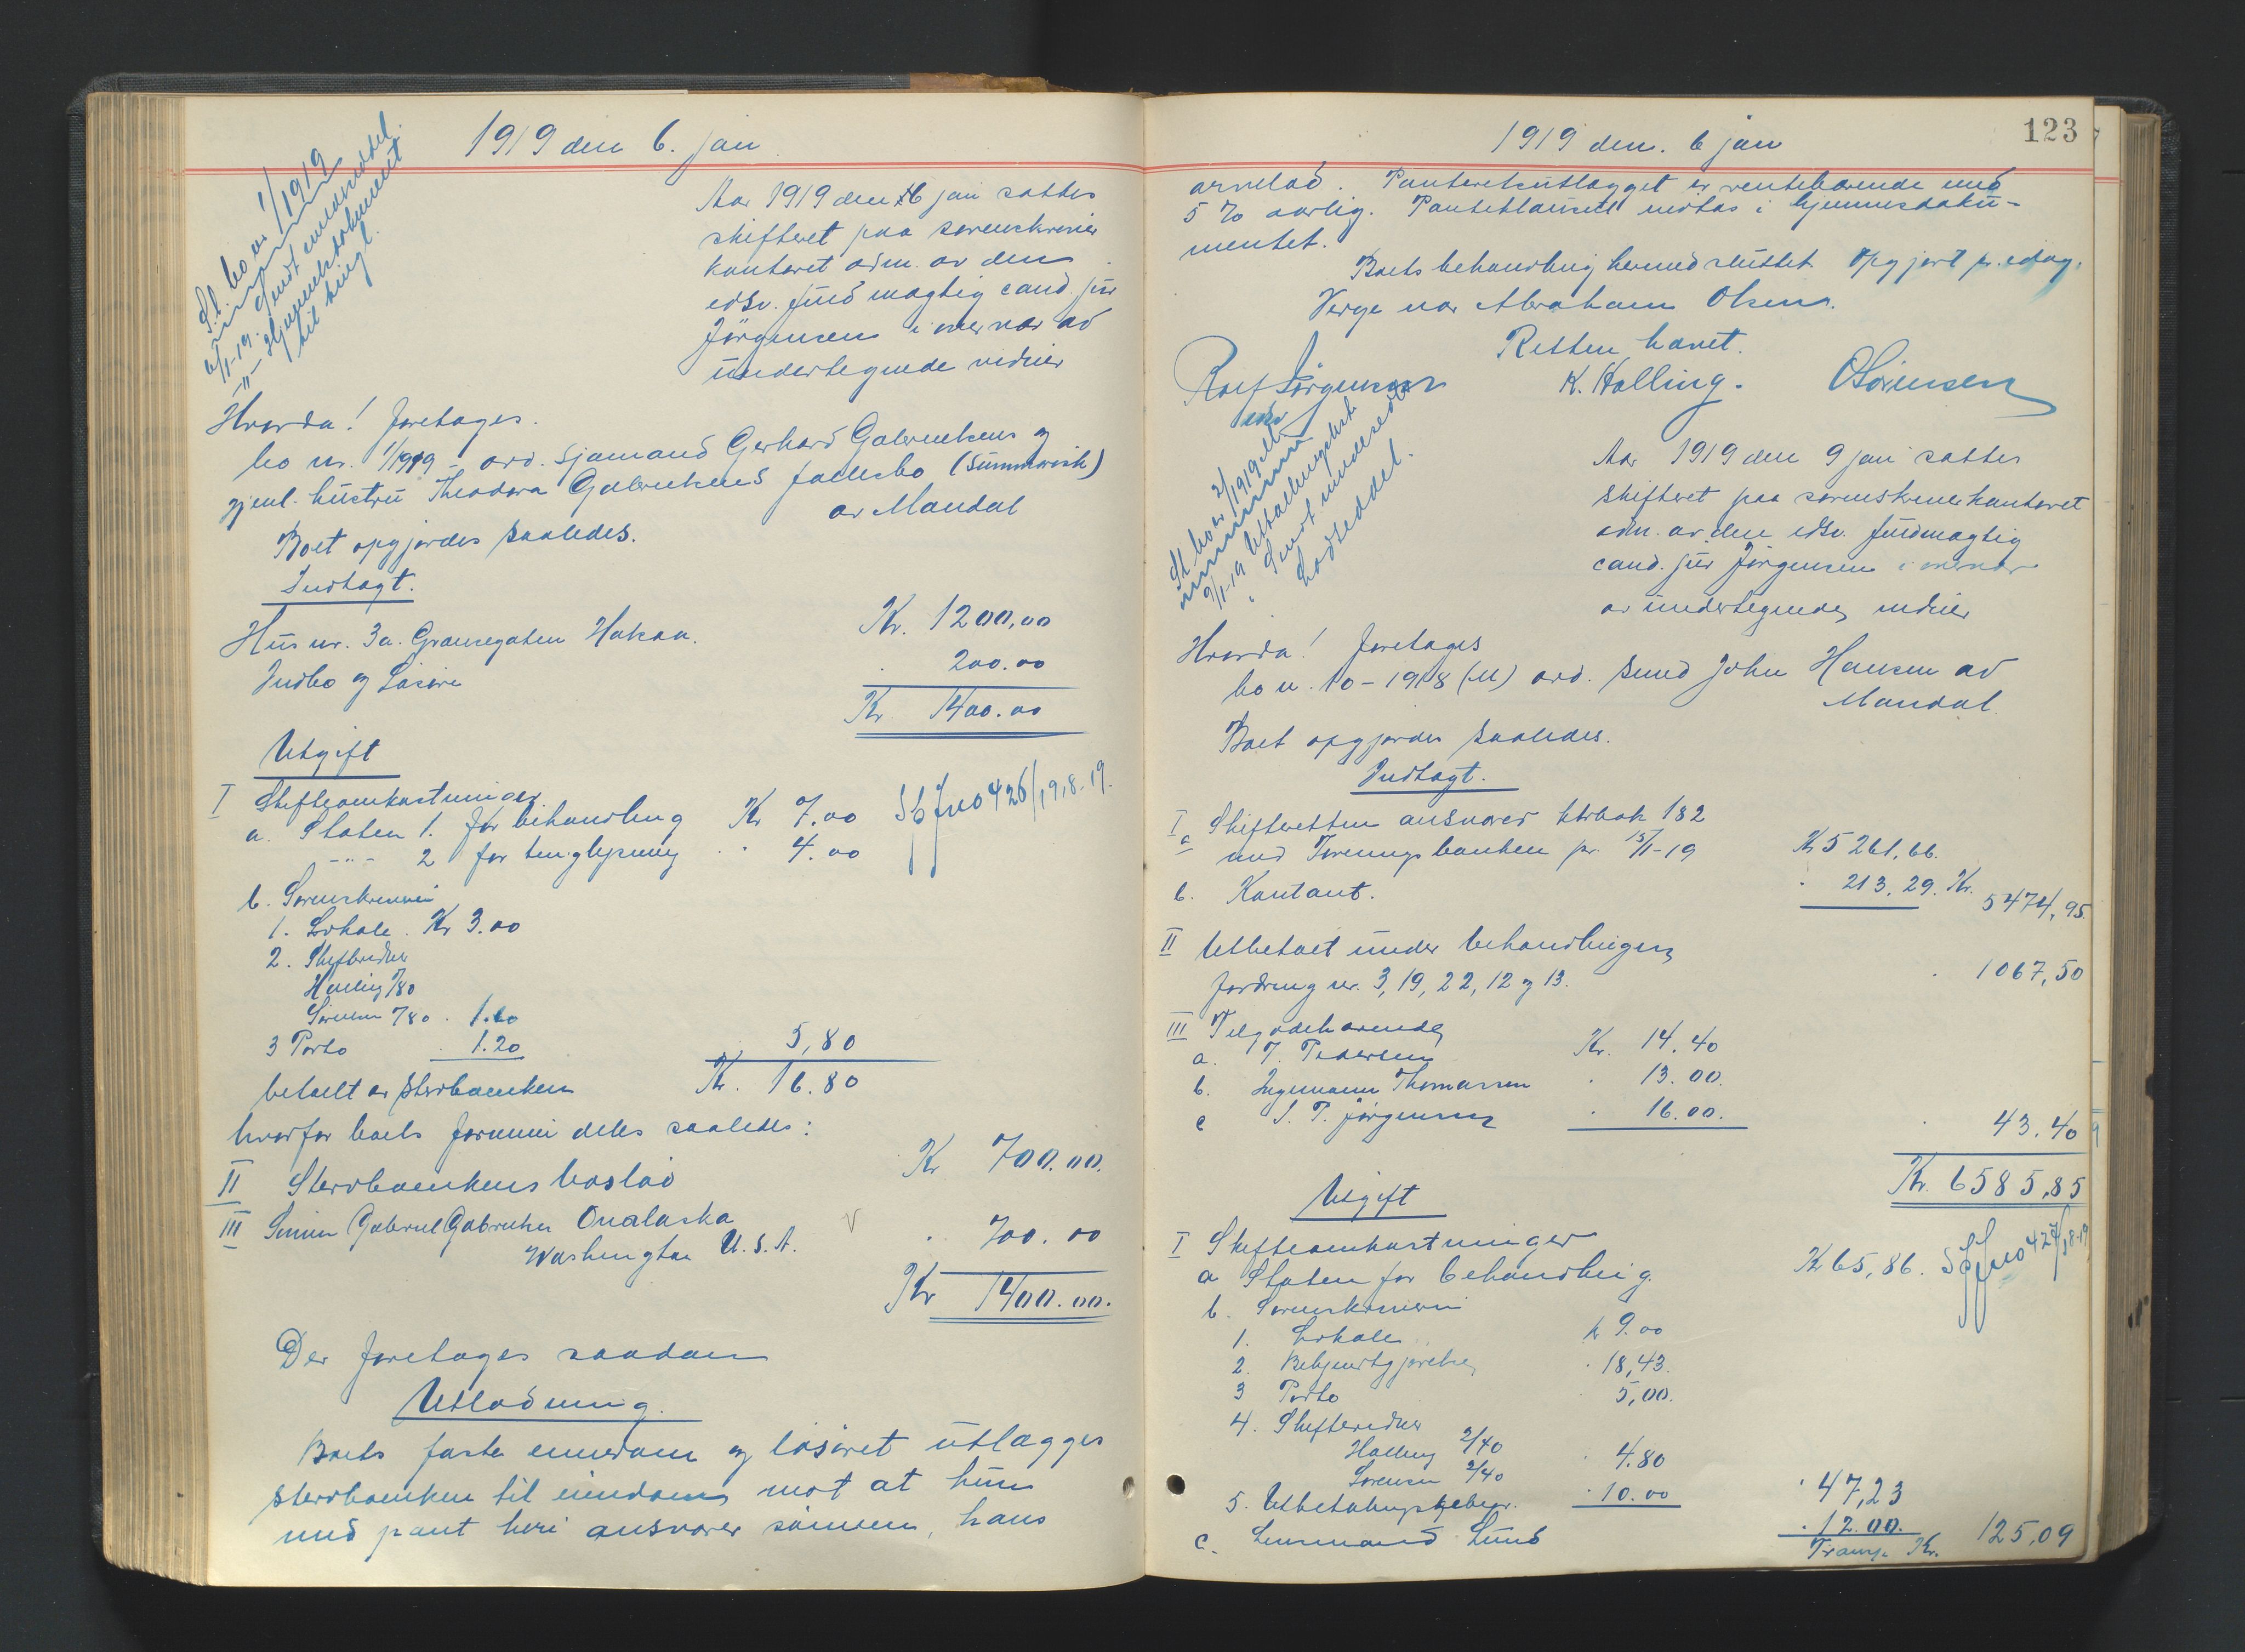 1919 den 6. jan
St. bo nr. 1/1919
6/1-19. sendt
-"- Hjemmelsdokument
til tingl.
Aar 1919 den 6 jan sattes
skifteret paa sorenskriver
kontoret adm. av den
edsv. fuldmægtig cand. jur
Jörgensen i overvær av
undertegnede vidner
Hvorda! foretages.
bo nr. 1/1919 - avd. sjømand Gerhard Gabrielsens og
gjenl. hustru Theodora Gabrielsens fællesbo (summarisk)
av Mandal
Boet opgjordes saaledes.
Indtægt.
Hus nr. 3a. Grænsegaten Halsaa. Kr. 1200,00
Indbo og Løsøre 200.00
Kr 1400.00
Utgift
I Skifteomkostninger.
a. Staten 1. for behandling Kr 7.00 Sb Jno 426/1918-19.
-"- 2 for tinglysning 4.00
b. Sorenskriveren
1. Lokale. Kr 3.00
2. Skiftevidner
Halling /80
Sörensen /80 1.60
3 Porto 1.20 5,80
betalt av sterboenken Kr. 16.80
hvorfor boets formue deles saaledes:
II Sterboenkens boslod Kr 700.00.
III Sönnen Gabriel Gabrielsen Onalaska V 700.00
Washington U.S.A.
Kr 1400.00.
Der foretages saadan
Utlodning.
Boets faste eiendom og løsøret utlægges
sterboenken til eiendom mot at hun
med pant heri ansvarer sønnen, hans
1919 den. 6 jan
123
arvelod. Panteretsutlægget er rentebærende med
5 % aarlig. Panteklausul indtas i hjemmelsdoku-
mentet.
Boets behandling hermed sluttet Opgjort pr. idag.
Verge var Abraham Olsen.
Retten hævet.
Rolf Jörgensen K. Halling. O Sörensen
edsv
St bo nr 2/1919 M
9/1-19 Utbetalingsliste
" Sendt
Lodseddel.
Aar 1919 den 9 jan sattes
skifteret paa sorenskriverkontoret
adm. av den edsv. fuldmægtig
cand. jur Jörgensen i overvær
av undertegnede vidner
Hvorda! foretages
bo nr. 10 - 1918 (M) avd. smed John Hansen av
Mandal
Boet opgjordes saaledes.
Indtægt.
I a Skifteretten ansvarer ktrbok 182
med Foreningsbanken pr. 15/1-19 Kr 5261,66.
b. Kontant. 213,29. Kr. 5474,95
II Utbetalt under behandlingen
fordring nr. 3, 19, 22, 12 og 13. 1067,50
III Tilgodehavende
a. T. Pedersen Kr. 14.40
b. Ingemann Thomassen 13.00.
c S. P. Jörgensen 16.00. 43.40
Kr. 6585,85
Utgift
I Skifteomkostninger
a Staten for behandling. Kr 65,86. Sb Jno 427/18-19
b. Sorenskriveren
1. Lokale k 9.00
2. Bekjendtgjørelse 18,43.
3 Porto 5,00.
4. Skiftevidner
Halling 2/40
Sörensen 2/40 4.80
5. Utbetalingsgebyr. 10.00 47,23
c. Lensmand Lund 12.00.
Transp. Kr. 125,09